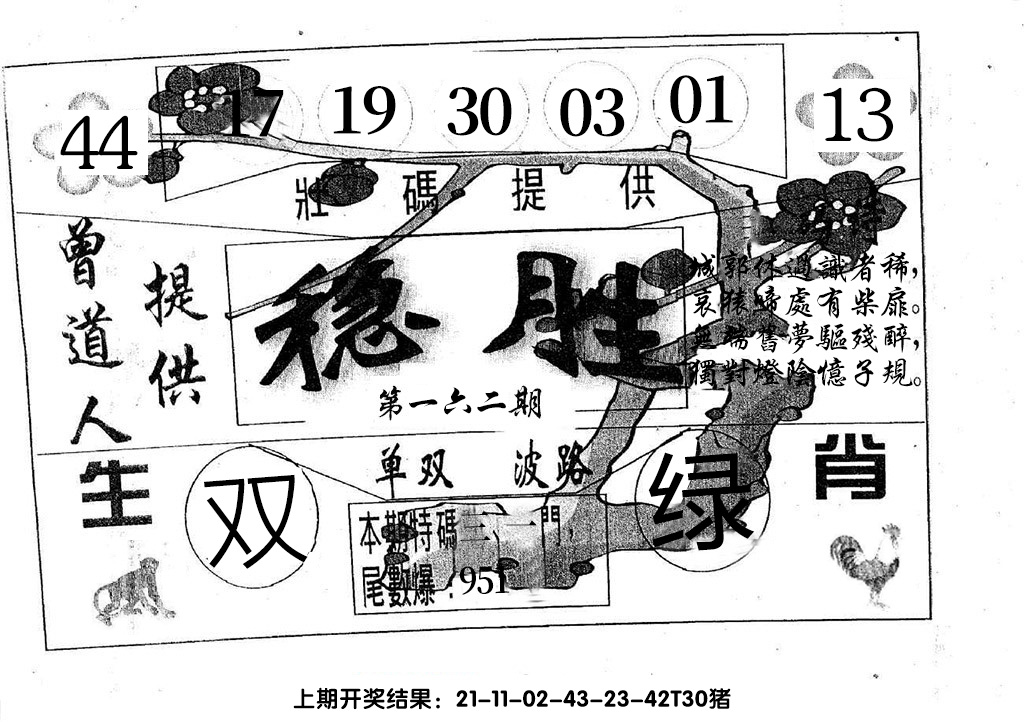 44 17 19 30 03 01 13
壯碼提供
曾道人
提供
稳胜
第一六二期
城郭休過識者稀，
哀猿啼處有柴扉。
無端舊夢驅殘醉，
獨對燈陰憶子規。
单双 波路
生肖
双
绿
本期特碼三、一門，
尾數爆：951
上期开奖结果：21-11-02-43-23-42T30猪